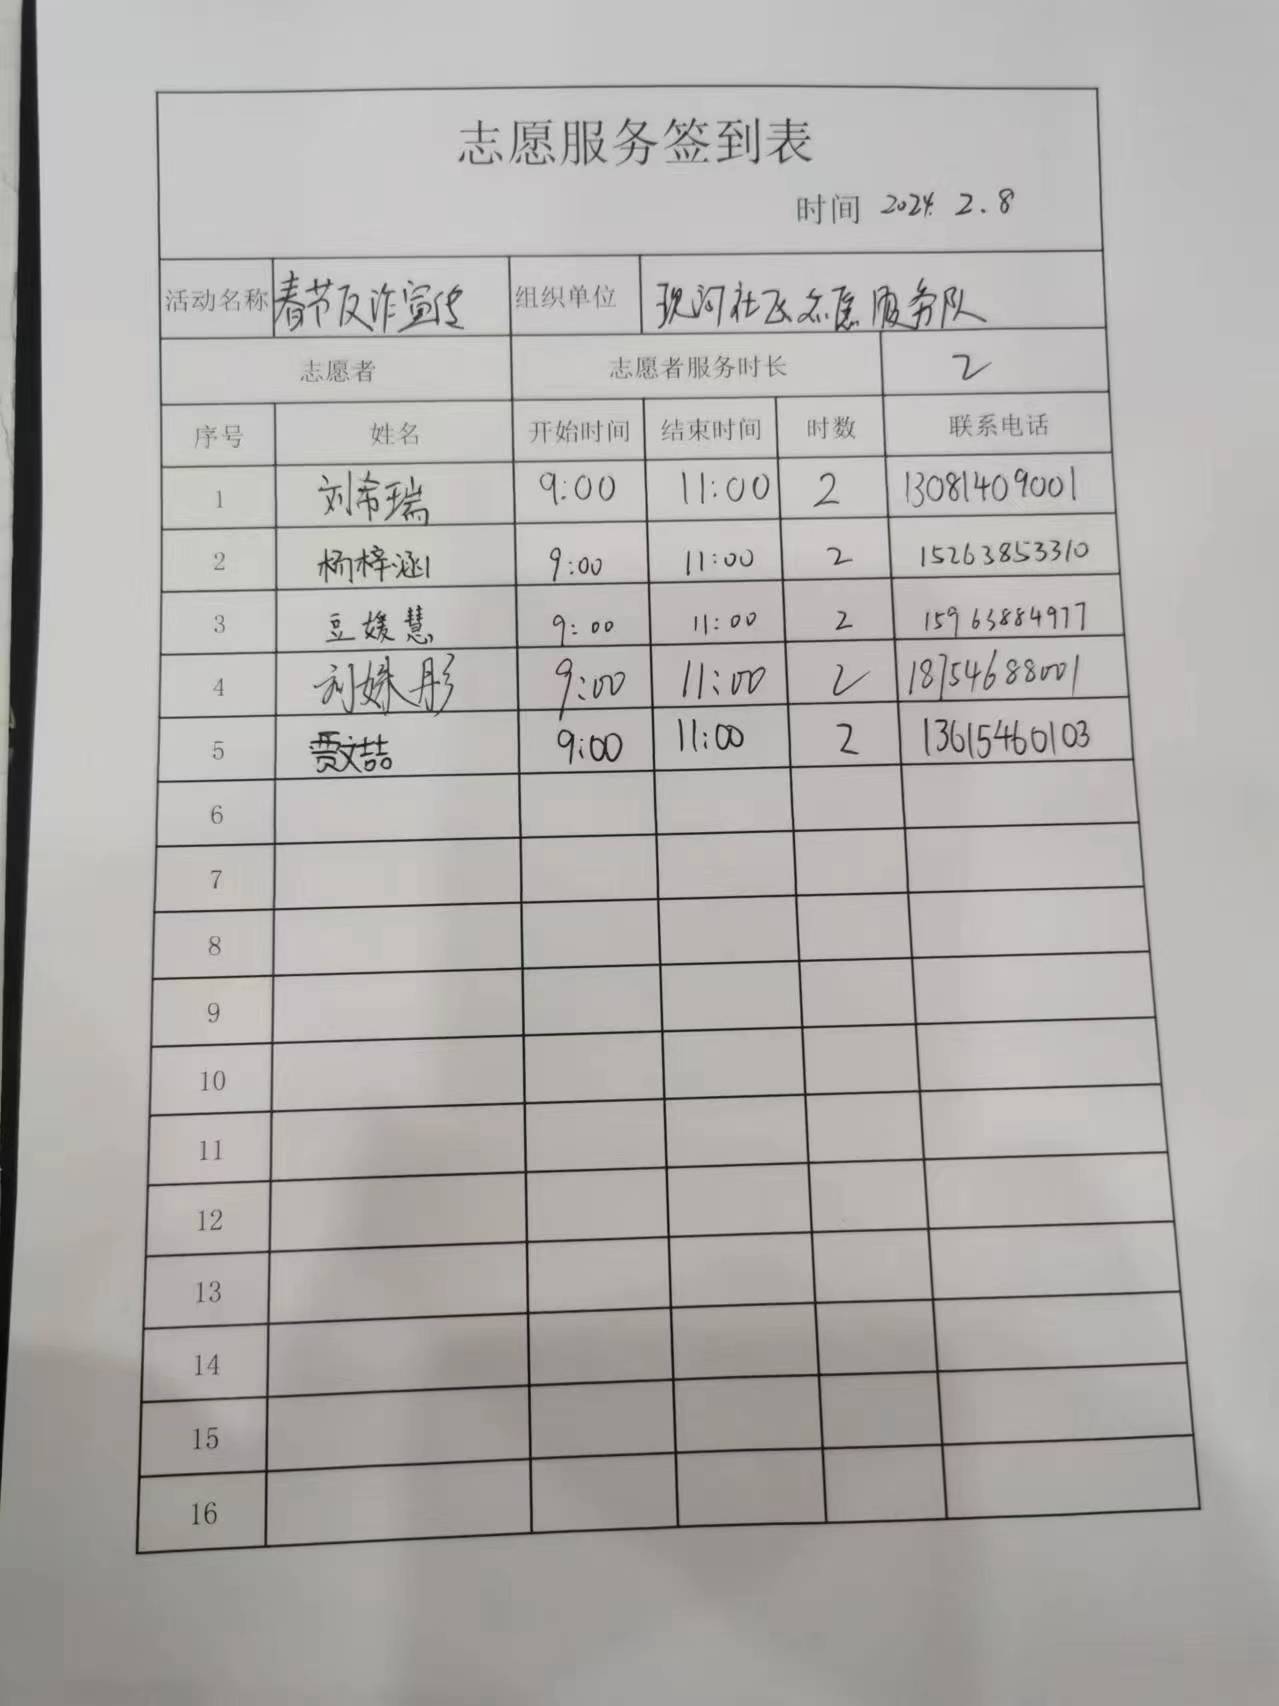 志愿服务签到表
时间 2024. 2.8
活动名称 春节反诈宣传 组织单位 现河社区志愿服务队
志愿者 志愿者服务时长 2
序号 姓名 开始时间 结束时间 时数 联系电话
1 刘希瑞 9:00 11:00 2 13081409001
2 杨梓涵 9:00 11:00 2 15263853310
3 豆媛慧 9:00 11:00 2 15963884977
4 刘姝彤 9:00 11:00 2 18754688001
5 贾文喆 9:00 11:00 2 13615460103
6
7
8
9
10
11
12
13
14
15
16